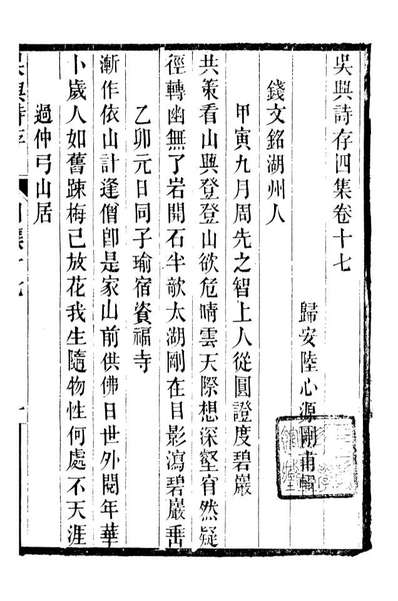 吳興詩存四集卷十七
歸安陸心源剛甫輯
錢文銘湖州人
甲寅九月周先之智上人從圓證度碧巖
共策看山興登登山欲危晴雲天際想深壑窅然疑
徑轉幽無了岩開石半欹太湖剛在目影瀉碧巖垂
乙卯元日同子瑜宿資福寺
漸作依山計逢僧卽是家山前供佛日世外閱年華
卜歲人如舊踈梅已放花我生隨物性何處不天涯
過仲弓山居